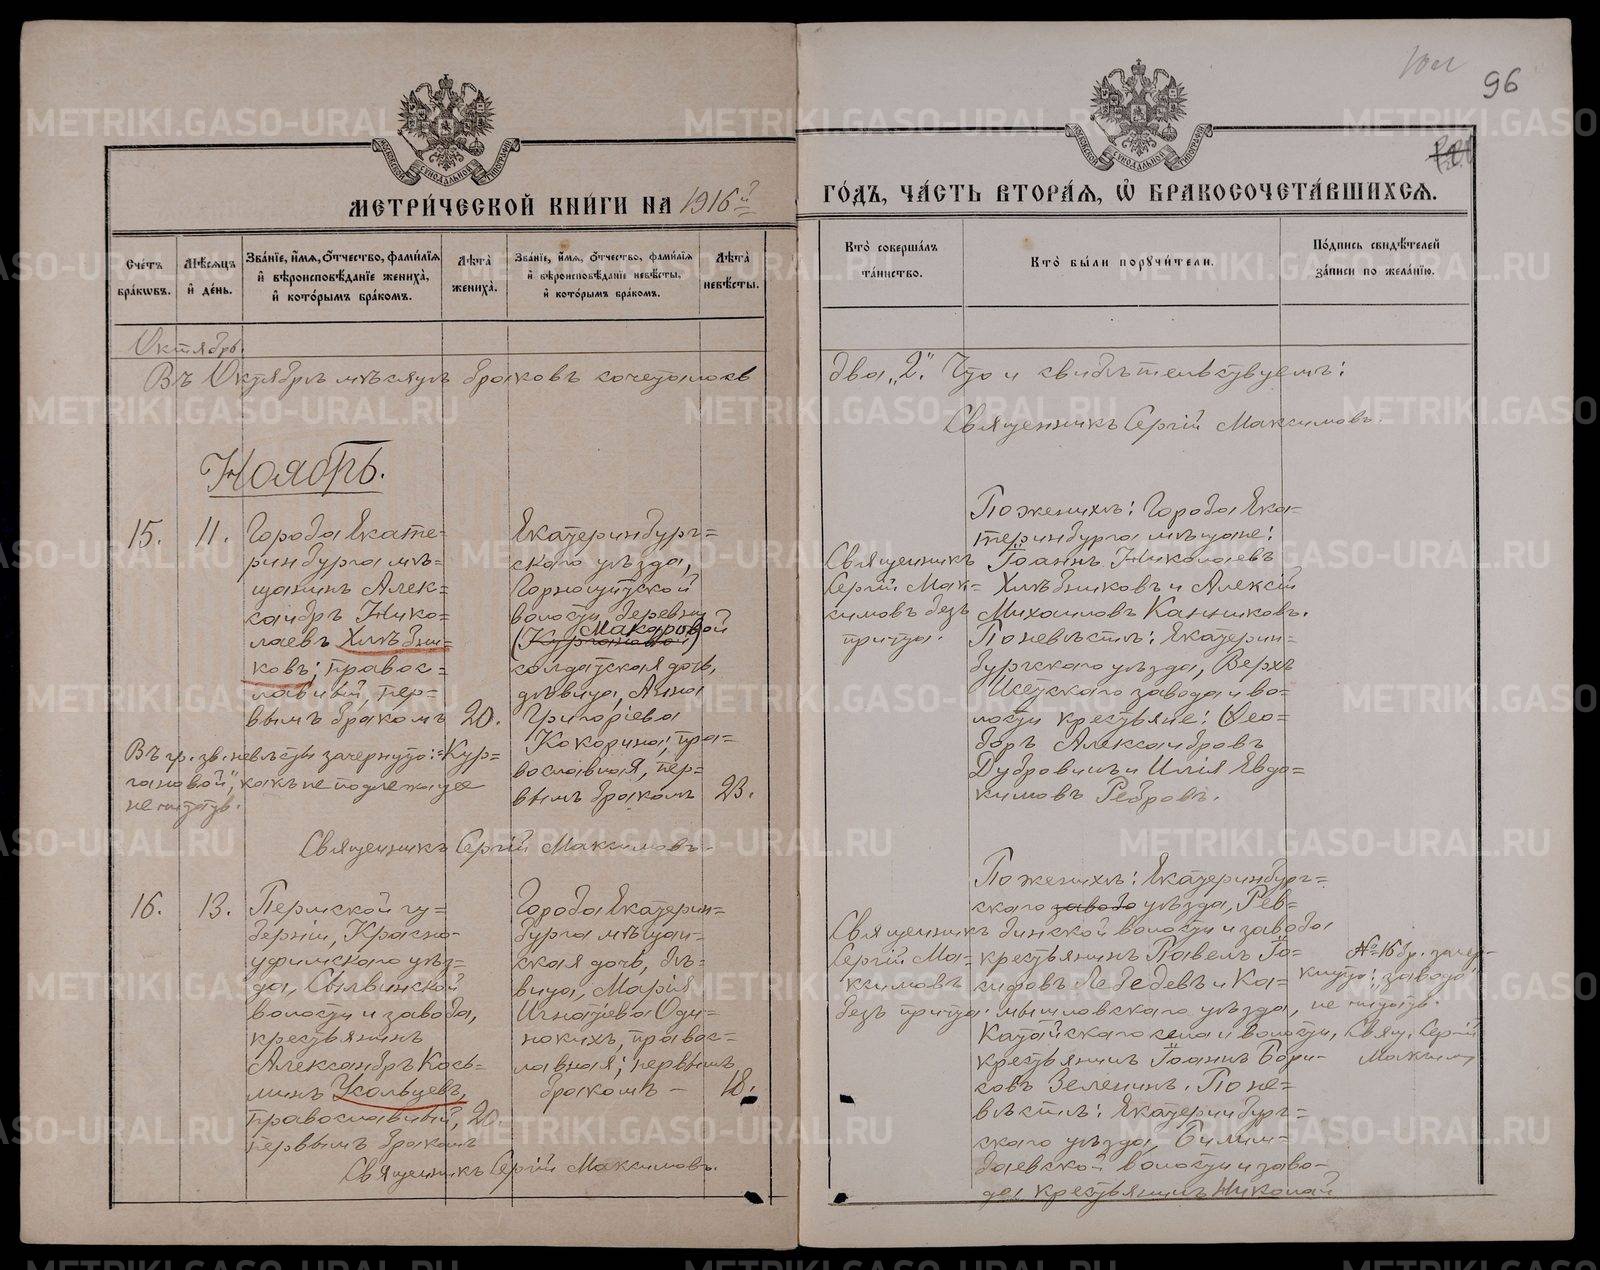 96
МЕТРИЧЕСКОЙ КНИГИ НА 1916й
ГОДЪ, ЧАСТЬ ВТОРАЯ, Ѡ БРАКОСОЧЕТАВШИХСЯ.
Счетъ браковъ.
Мѣсяцъ и день.
Званіе, имя, отчество, фамилія
и вѣроисповѣданіе жениха,
и которымъ бракомъ.
Лѣта
жениха.
Званіе, имя, отчество, фамилія
и вѣроисповѣданіе невѣсты,
и которымъ бракомъ.
Лѣта
невѣсты.
Кто совершалъ
таинство.
Кто были поручители.
Подпись свидѣтелей
записи по желанію.
Октябрь.
Въ Октябрѣ мѣсяцѣ браковъ сочеталось
два „2". Что и свидѣтельствуемъ:
Священникъ Сергій Максимовъ.
Ноябрь.
15.
11.
Города Екате=
ринбурга мѣ=
щанинъ Алек=
сандръ Нико=
лаевъ Хлѣбни=
ковъ; правос=
лавный, пер=
вымъ бракомъ
20.
Екатеринбург=
скаго уѣзда,
Горнощитской
волости, деревни
Макаровой
(Кургановой)
солдатская дочь,
дѣвица, Анна
Григоріева
Кокорина; пра=
вославная, пер=
вымъ бракомъ
23.
Въ гр. зв. невѣсты зачеркнуто: „Кур=
гановой", какъ не подлежащее
не читать.
Священникъ Сергій Максимовъ.
Священникъ
Сергій Мак=
симовъ безъ
причта.
По женихѣ: Города Ека=
теринбурга мѣщане:
Іоаннъ Николаевъ
Хлѣбниковъ и Алексій
Михаиловъ Канниковъ.
По невѣстѣ: Екатерин=
бургскаго уѣзда, Верхъ
Исетскаго завода и во=
лости крестьяне: Ѳео=
доръ Александровъ
Дубровинъ и Илія Евдо=
кимовъ Ребровъ.
16.
13.
Пермской гу=
берніи, Красно-
уфимскаго уѣз=
да, Сылвинской
волости и завода,
крестьянинъ
Александръ Козь=
минъ Усольцевъ,
православный,
первымъ бракомъ
20.
Города Екатерин=
бурга мѣщан=
ская дочь, дѣ=
вица, Марія
Игнатіева Оди=
нокихъ, правос=
лавная; первымъ
бракомъ –
18.
Священникъ Сергій Максимовъ.
Священникъ
Сергій Ма=
ксимовъ
безъ причта.
По женихѣ: Екатеринбург=
скаго заводо уѣзда, Рев=
динской волости и завода
крестьянинъ Павелъ Іо=
сифовъ Лебедевъ и Ка=
мышловскаго уѣзда,
Катайскаго села и волости,
крестьянинъ Іоаннъ Бори=
совъ Зеленинъ. По не=
вѣстѣ: Екатеринбург=
скаго уѣзда, Билим=
баевской волости и заво=
да крестьянинъ Николай
№ 16 гр. зачер=
кнуто: „заводо"
не читать.
Свящ. Сергій
Максимовъ
METRIKI.GASO-URAL.RU